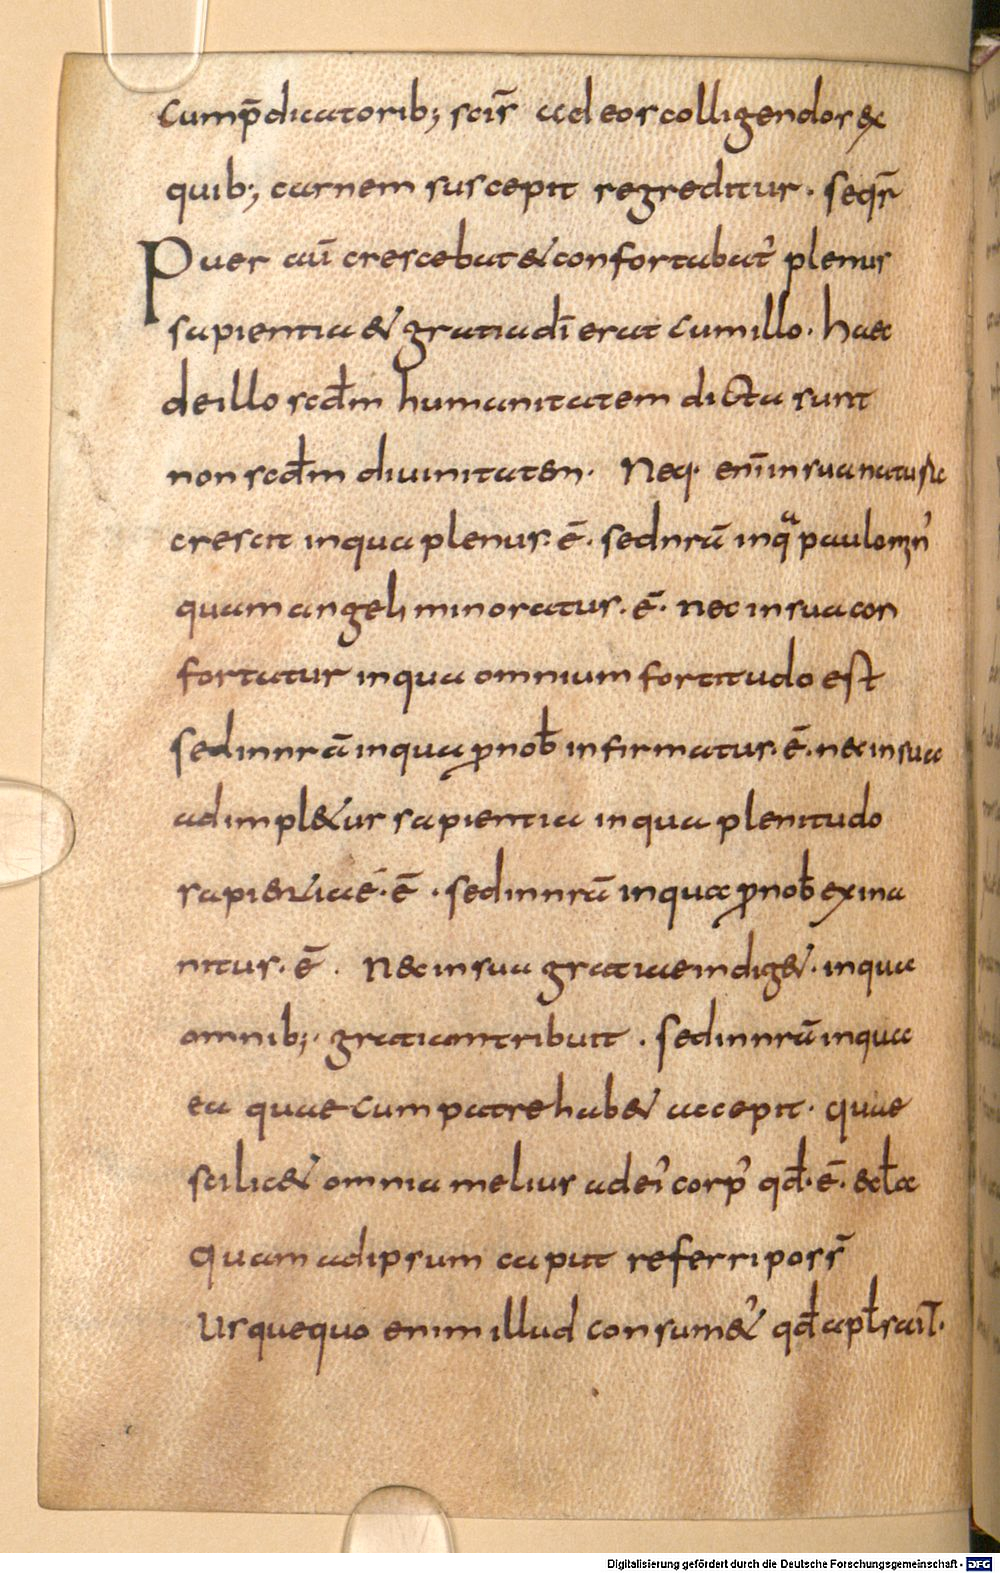 cump̄dicatorib; scīs adeos colligendos ex
quib; carnem suscepit regreditur. seqr̄
Puer aūt crescebat & confortabat᾿ plenus
sapientia & gratia dī erat cum illo. haec
de illo scd̄m humanitatem dicta sunt
non scd̄m diuinitatem. Neq. enī in sua natus ÷
crescit in qua plenus. ē. sed nrā in qa paulomin᾿
quam angeli minoratus. ē. nec in sua con
fortatur in qua omnium fortitudo est
sed in nrā in qua ꝓ nob̄ infirmatus. ē. nec in sua
adimpl&ur sapientia in qua plenitudo
sapientiae. ē. sed in nrā in qua ꝓ nob̄ exina
nitus. ē. Nec in sua gratiae indig&. in qua
omnib; gratiam tribuit. sed in nrā in qua
ea quae cum patre hab& accepit. quae
scilic& omnia melius ad ei᾿ corp᾿ qd̄. ē. eccla
quam ad ipsum caput referri posst̄
Usquequo enim illud consum&᾿ qd̄ apl̄s ait.
Digitalisierung gefördert durch die Deutsche Forschungsgemeinschaft - DFG